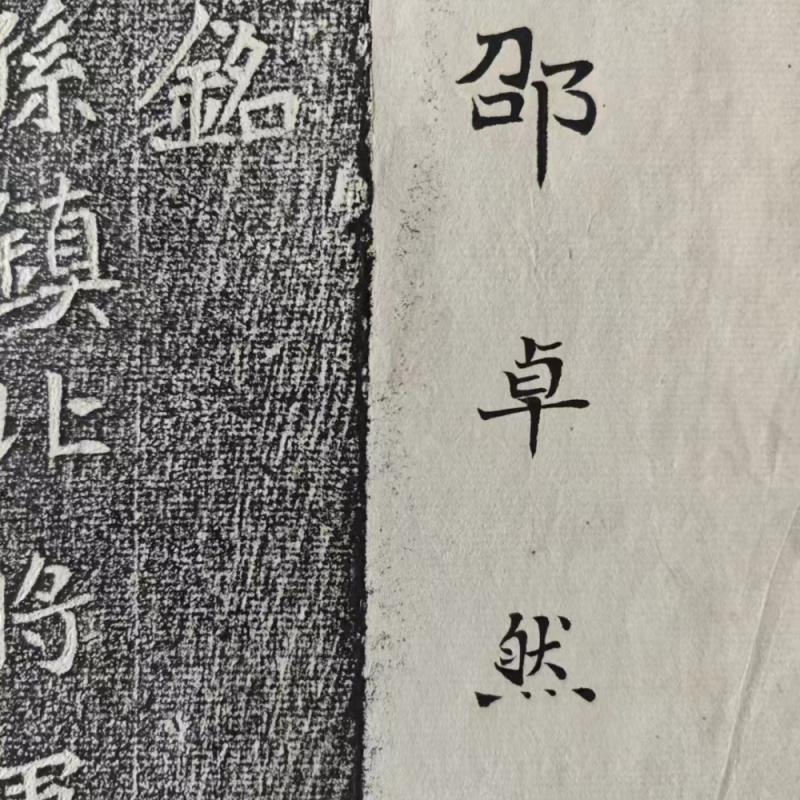 邵卓然
銘
孫鎮北將軍